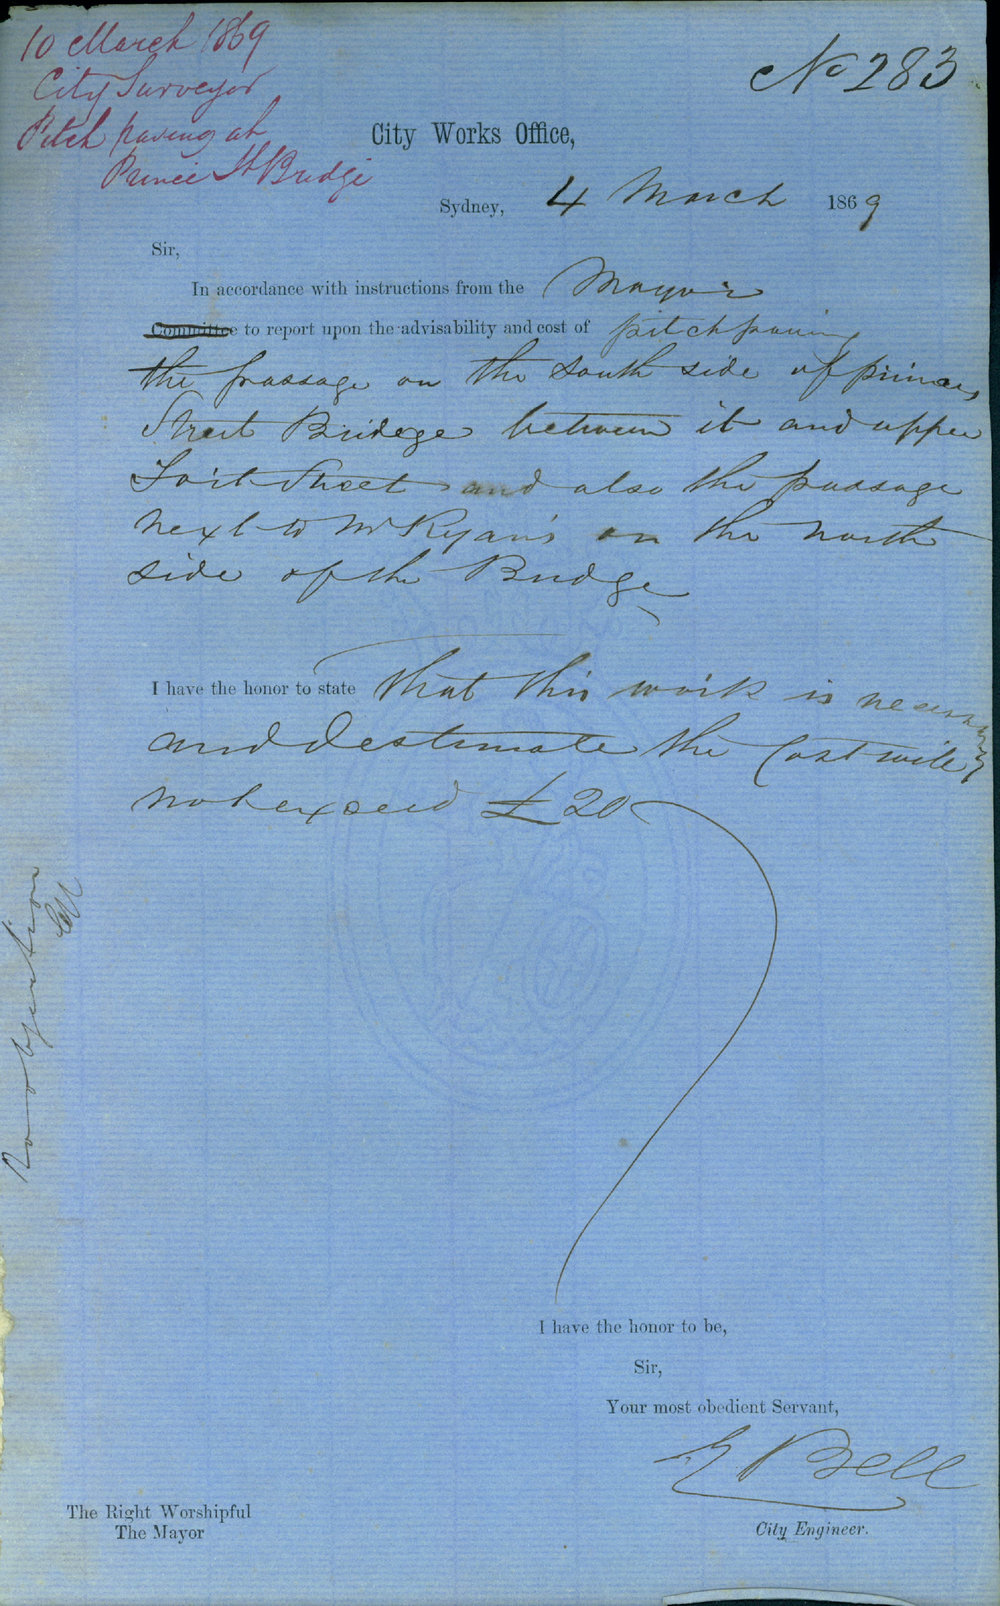 10 March 1869
City Surveyor
Pitch paving at
Prince St Bridge
No 283
City Works Office,
Sydney, 4 March 1869
Sir,
In accordance with instructions from the Mayor
Committee to report upon the advisability and cost of pitch paving
the passage on the South side of princes
Street Bridge between it and upper
Fort Street and also the passage
next to Mr Ryan's on the north
side of the Bridge
I have the honor to state that this work is necessary
and I estimate the Cost will
not exceed £20
No objection
I have the honor to be,
Sir,
Your most obedient Servant,
E Bell
City Engineer.
The Right Worshipful
The Mayor